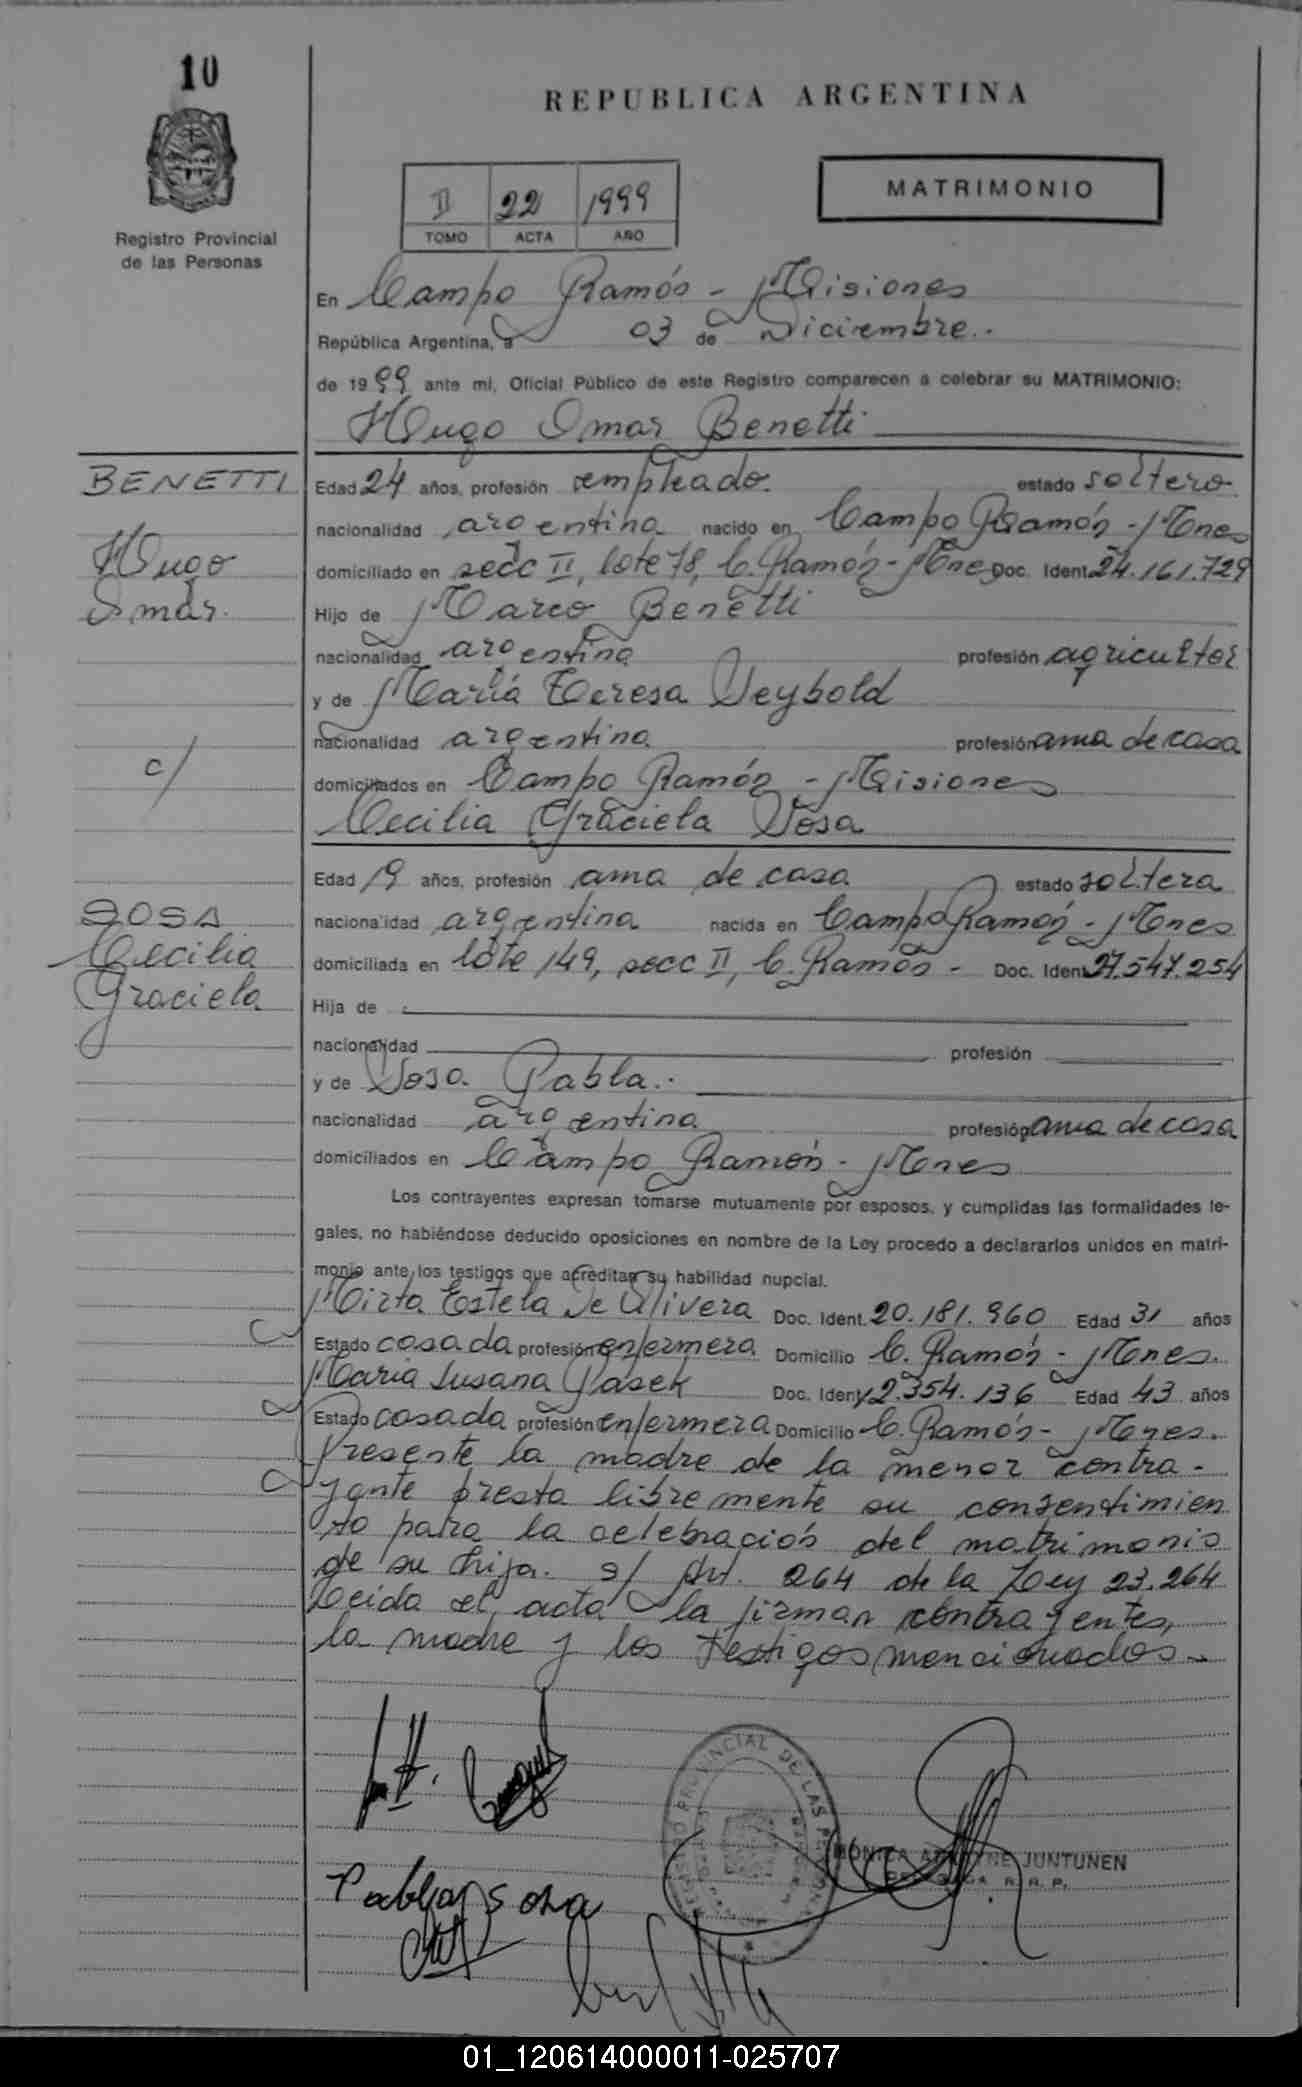 10
REPUBLICA ARGENTINA
Registro Provincial
de las Personas
II 22 1999
TOMO ACTA AÑO
MATRIMONIO
En Campo Ramón - Misiones
República Argentina, a 03 de Diciembre.-
de 1999 ante mi, Oficial Público de este Registro comparecen a celebrar su MATRIMONIO:
Hugo Omar Benetti
BENETTI
Hugo
Omar.
c/
SOSA
Cecilia
Graciela
Edad 24 años, profesión empleado. estado soltero.
nacionalidad argentina nacido en Campo Ramón - Mnes
domiciliado en secc II, lote 78, C. Ramón - Mnes Doc. Ident. 24.161.729
Hijo de Marco Benetti
nacionalidad argentina profesión agricultor
y de María Teresa Seybold
nacionalidad argentina profesión ama de casa
domiciliados en Campo Ramón - Misiones
Cecilia Graciela Sosa
Edad 19 años, profesión ama de casa estado soltera
nacionalidad argentina nacida en Campo Ramón - Mnes
domiciliada en lote 149, secc II, C. Ramón - Doc. Ident. 27.547.254
Hija de
nacionalidad profesión
y de Sosa Pabla.-
nacionalidad argentina profesión ama de casa
domiciliados en Campo Ramón - Mnes
Los contrayentes expresan tomarse mutuamente por esposos, y cumplidas las formalidades le-
gales, no habiéndose deducido oposiciones en nombre de la Ley procedo a declararlos unidos en matri-
monio ante los testigos que acreditan su habilidad nupcial.
Mirta Estela De Olivera Doc. Ident. 20.181.960 Edad 31 años
Estado casada profesión enfermera Domicilio C. Ramón - Mnes.
Maria Susana Pasek Doc. Ident. 12.354.136 Edad 43 años
Estado casada profesión enfermera Domicilio C. Ramón - Mnes.
Presente la madre de la menor contra-
yente presta libremente su consentimien
to para la celebración del matrimonio
de su hija. s/ Art. 264 de la Ley 23.264
Leida el acta la firman contrayentes,
la madre y los testigos mencionados.-
REGISTRO PROVINCIAL DE LAS PERSONAS
Pabla Sosa
MONICA JUNTUNEN
R. R. P.
01_120614000011-025707